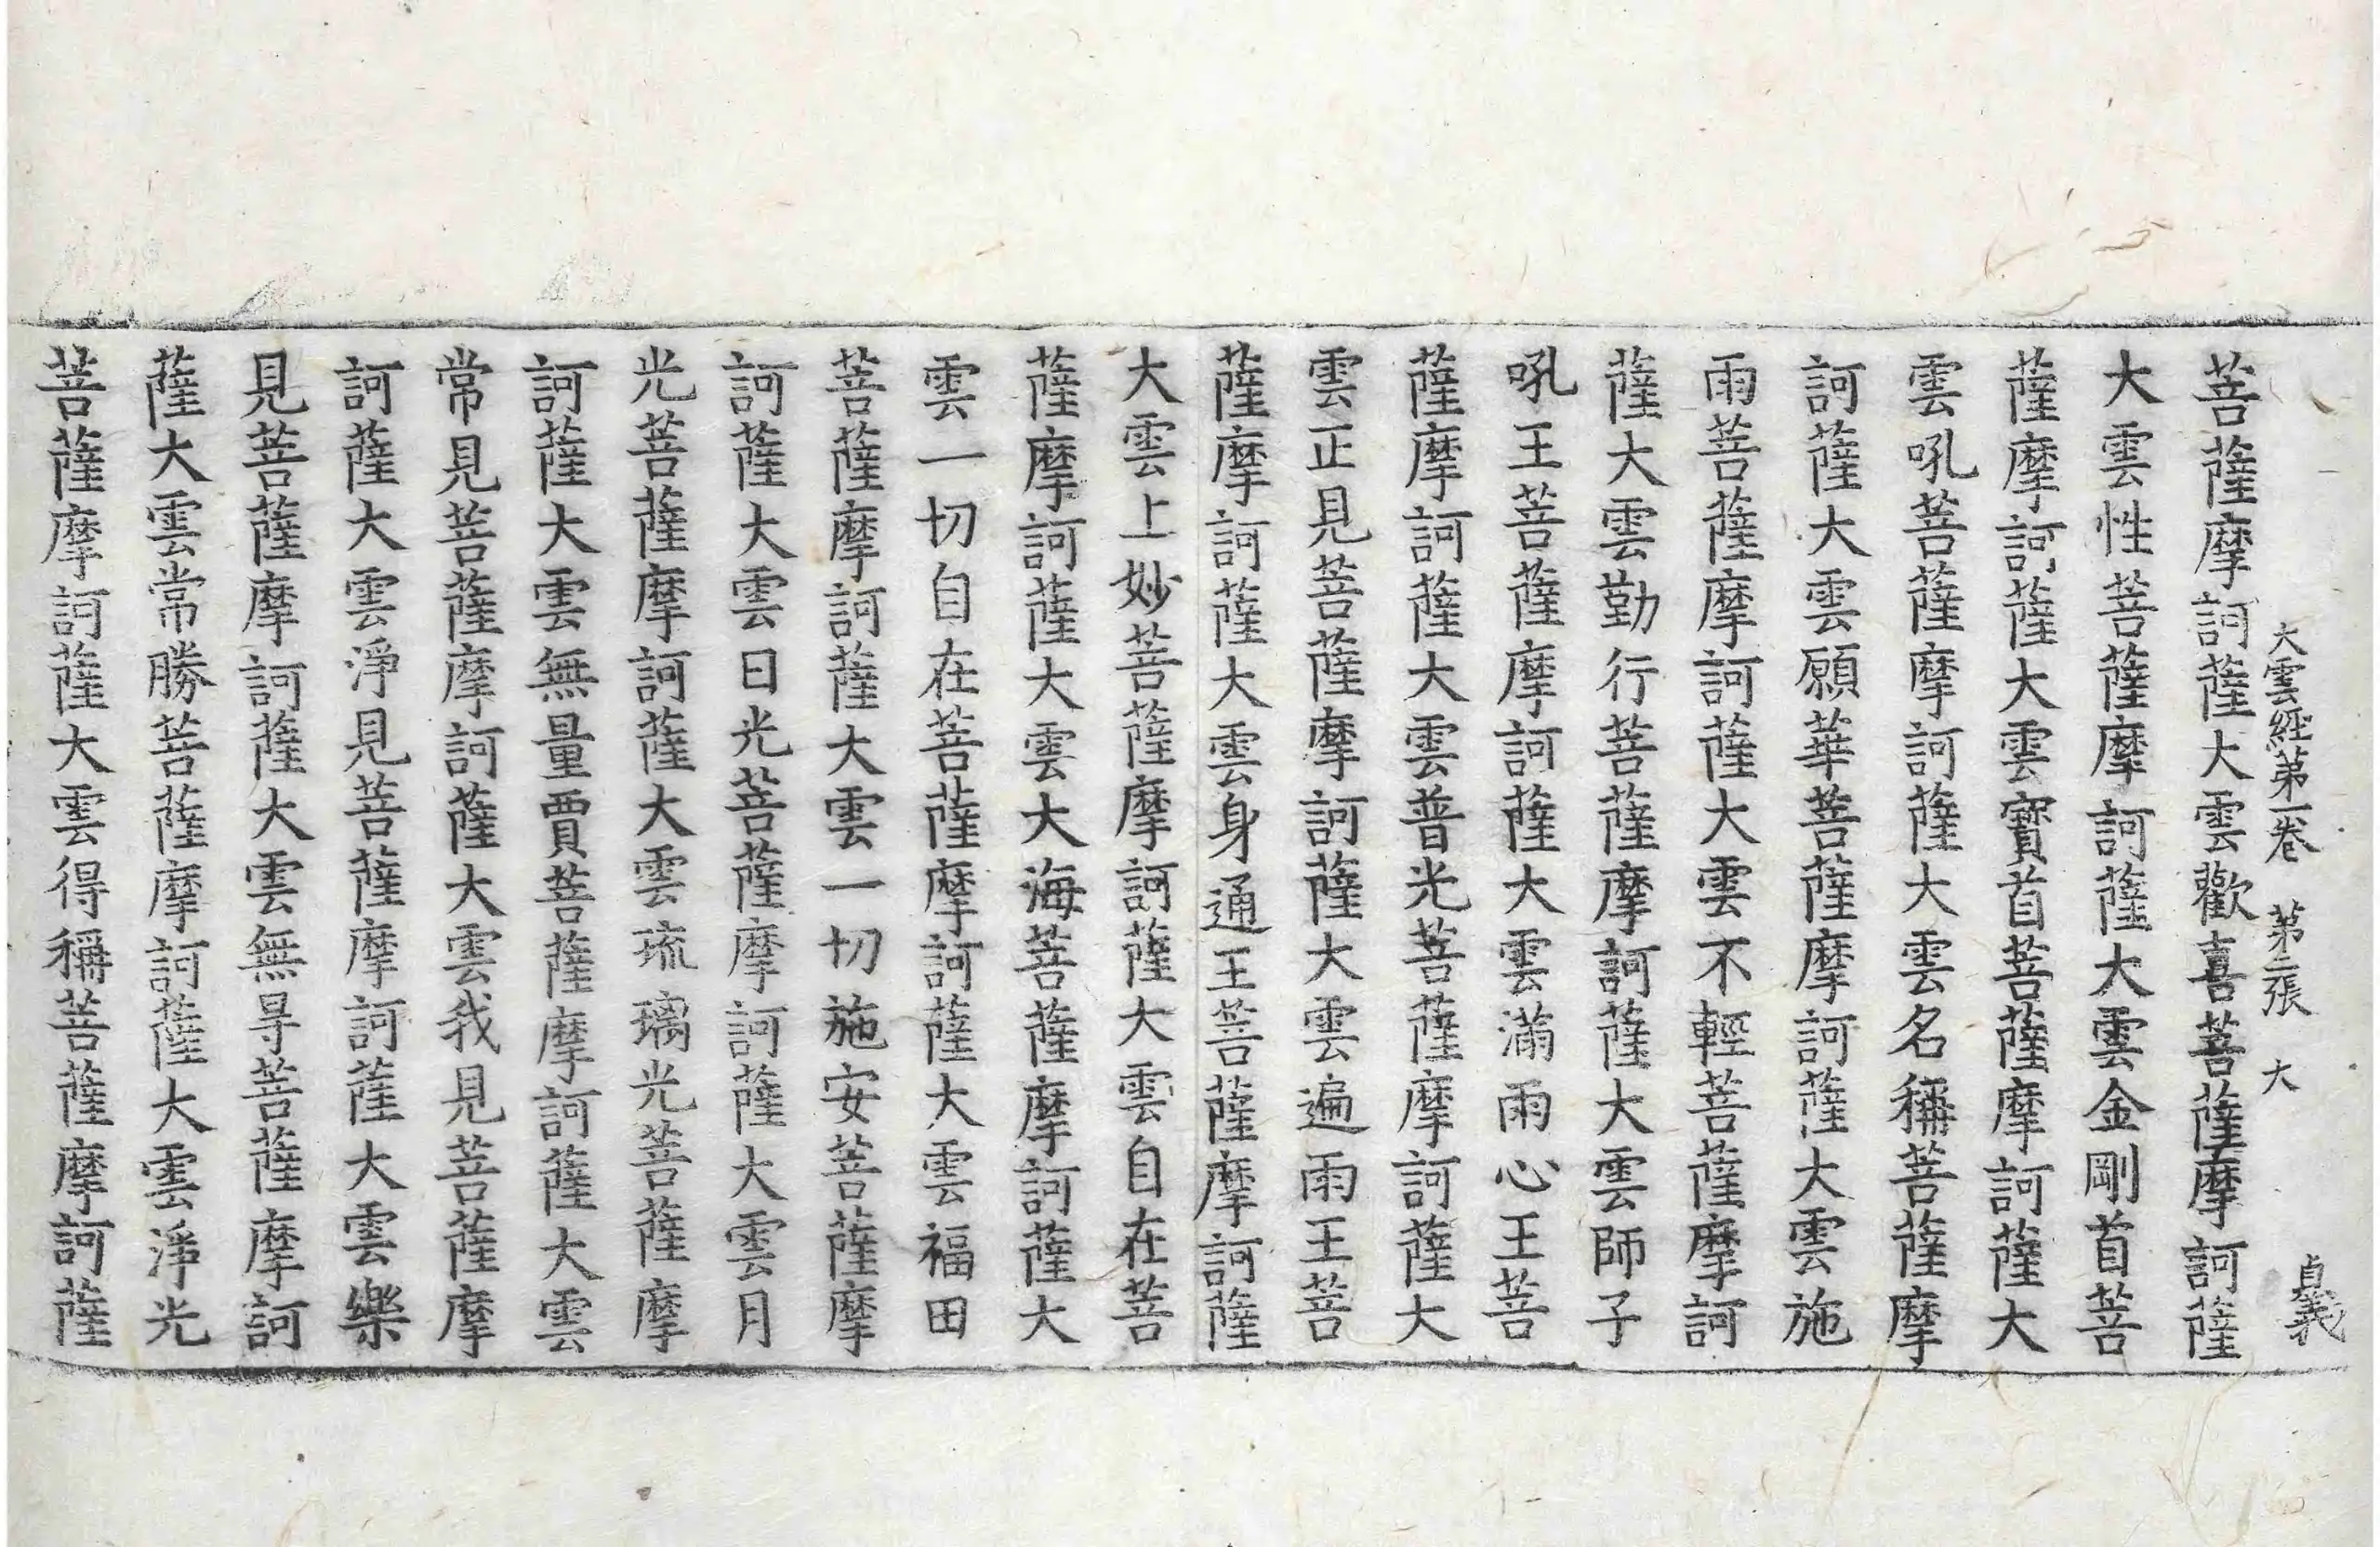 大雲經第一卷 第二張 大 貞義
菩薩摩訶薩大雲歡喜菩薩摩訶薩
大雲性菩薩摩訶薩大雲金剛首菩
薩摩訶薩大雲寶首菩薩摩訶薩大
雲吼菩薩摩訶薩大雲名稱菩薩摩
訶薩大雲願華菩薩摩訶薩大雲施
雨菩薩摩訶薩大雲不輕菩薩摩訶
薩大雲勤行菩薩摩訶薩大雲師子
吼王菩薩摩訶薩大雲滿雨心王菩
薩摩訶薩大雲普光菩薩摩訶薩大
雲正見菩薩摩訶薩大雲遍雨王菩
薩摩訶薩大雲身通王菩薩摩訶薩
大雲上妙菩薩摩訶薩大雲自在菩
薩摩訶薩大雲大海菩薩摩訶薩大
雲一切自在菩薩摩訶薩大雲福田
菩薩摩訶薩大雲一切施安菩薩摩
訶薩大雲日光菩薩摩訶薩大雲月
光菩薩摩訶薩大雲琉璃光菩薩摩
訶薩大雲無量賈菩薩摩訶薩大雲
常見菩薩摩訶薩大雲我見菩薩摩
訶薩大雲淨見菩薩摩訶薩大雲樂
見菩薩摩訶薩大雲無㝵菩薩摩訶
薩大雲常勝菩薩摩訶薩大雲淨光
菩薩摩訶薩大雲得稱菩薩摩訶薩